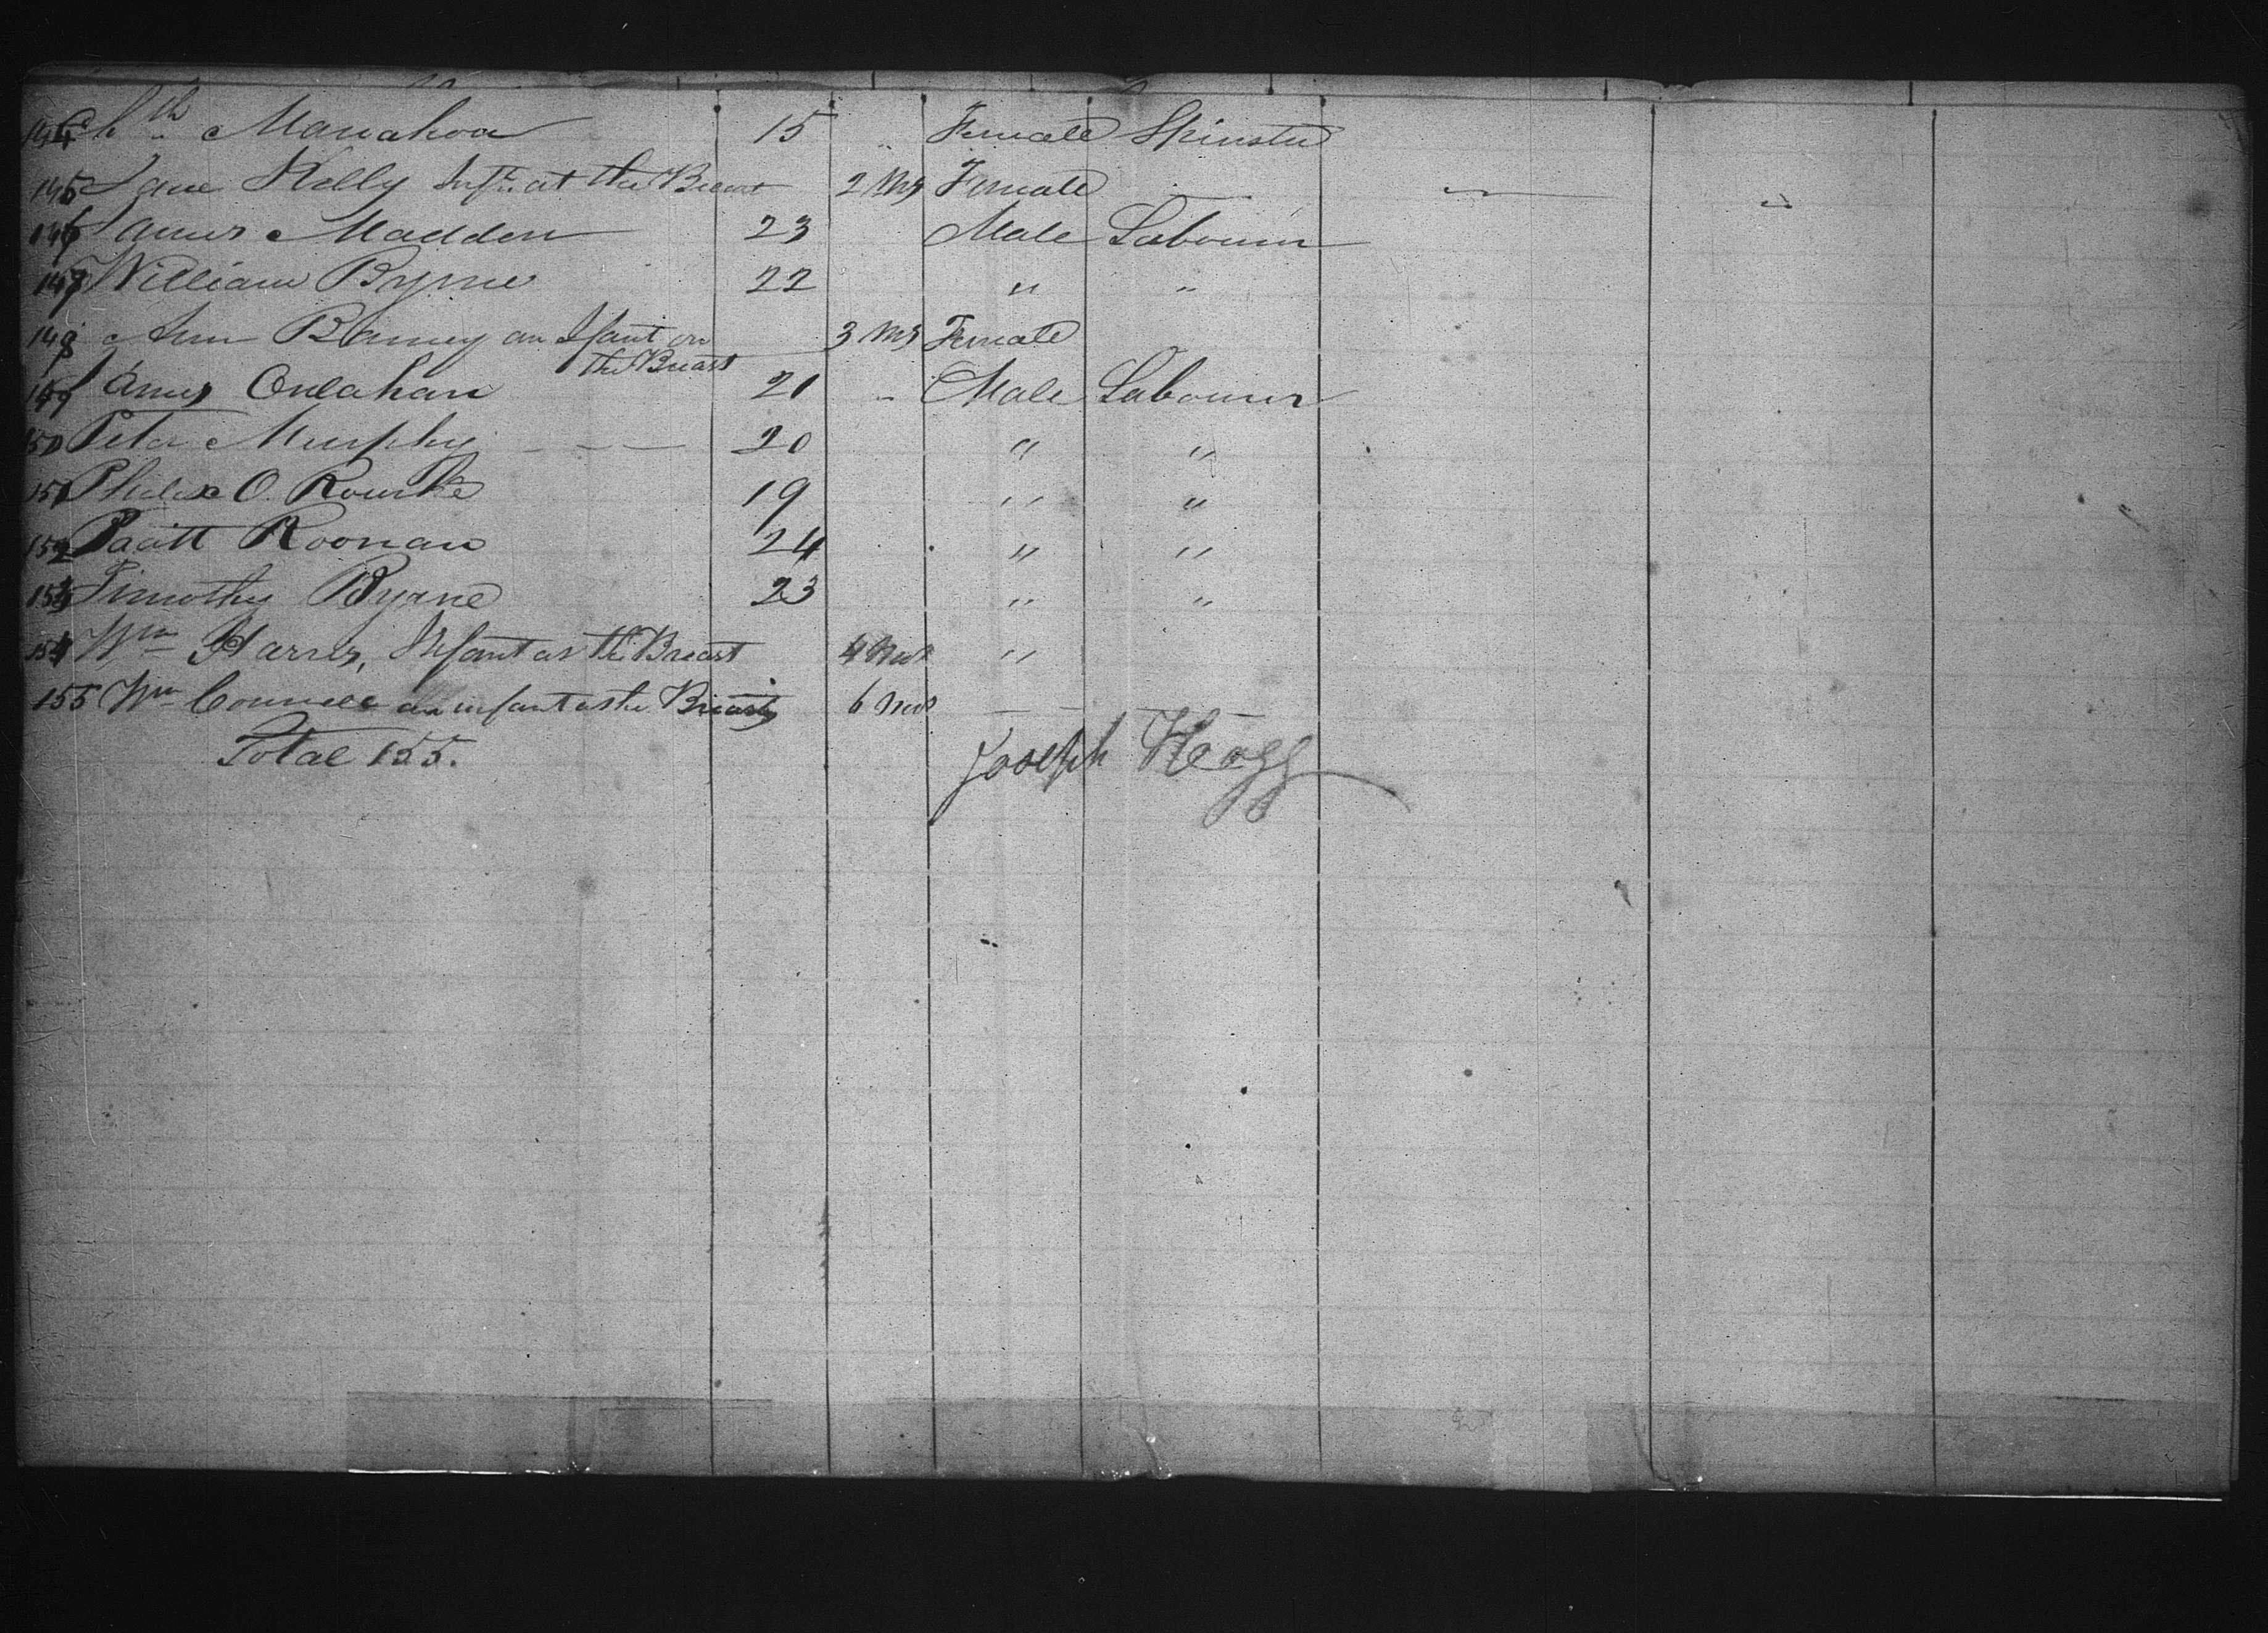 144 Manahon 15 " Female Spinster
145 Jane Kelly Inft at the Breast 2 Ms Female
146 James Madden 23 Male Labourer
147 William Byrne 22 " "
148 Ann Barney an Ifant on 3 Ms Female
the Breast
149 James Onlahan 21 " Male Labourer
150 Peter Murphy 20 " "
151 Phelix O. Rourke 19 " "
152 Patt Roonan 24 " "
153 Timothy Byrne 23 " "
154 Wm Harris, Infant at the Breast 4 Mos "
155 Wm Connell an infant at the Breast 6 Mos
Total 155.
Joseph Hogg